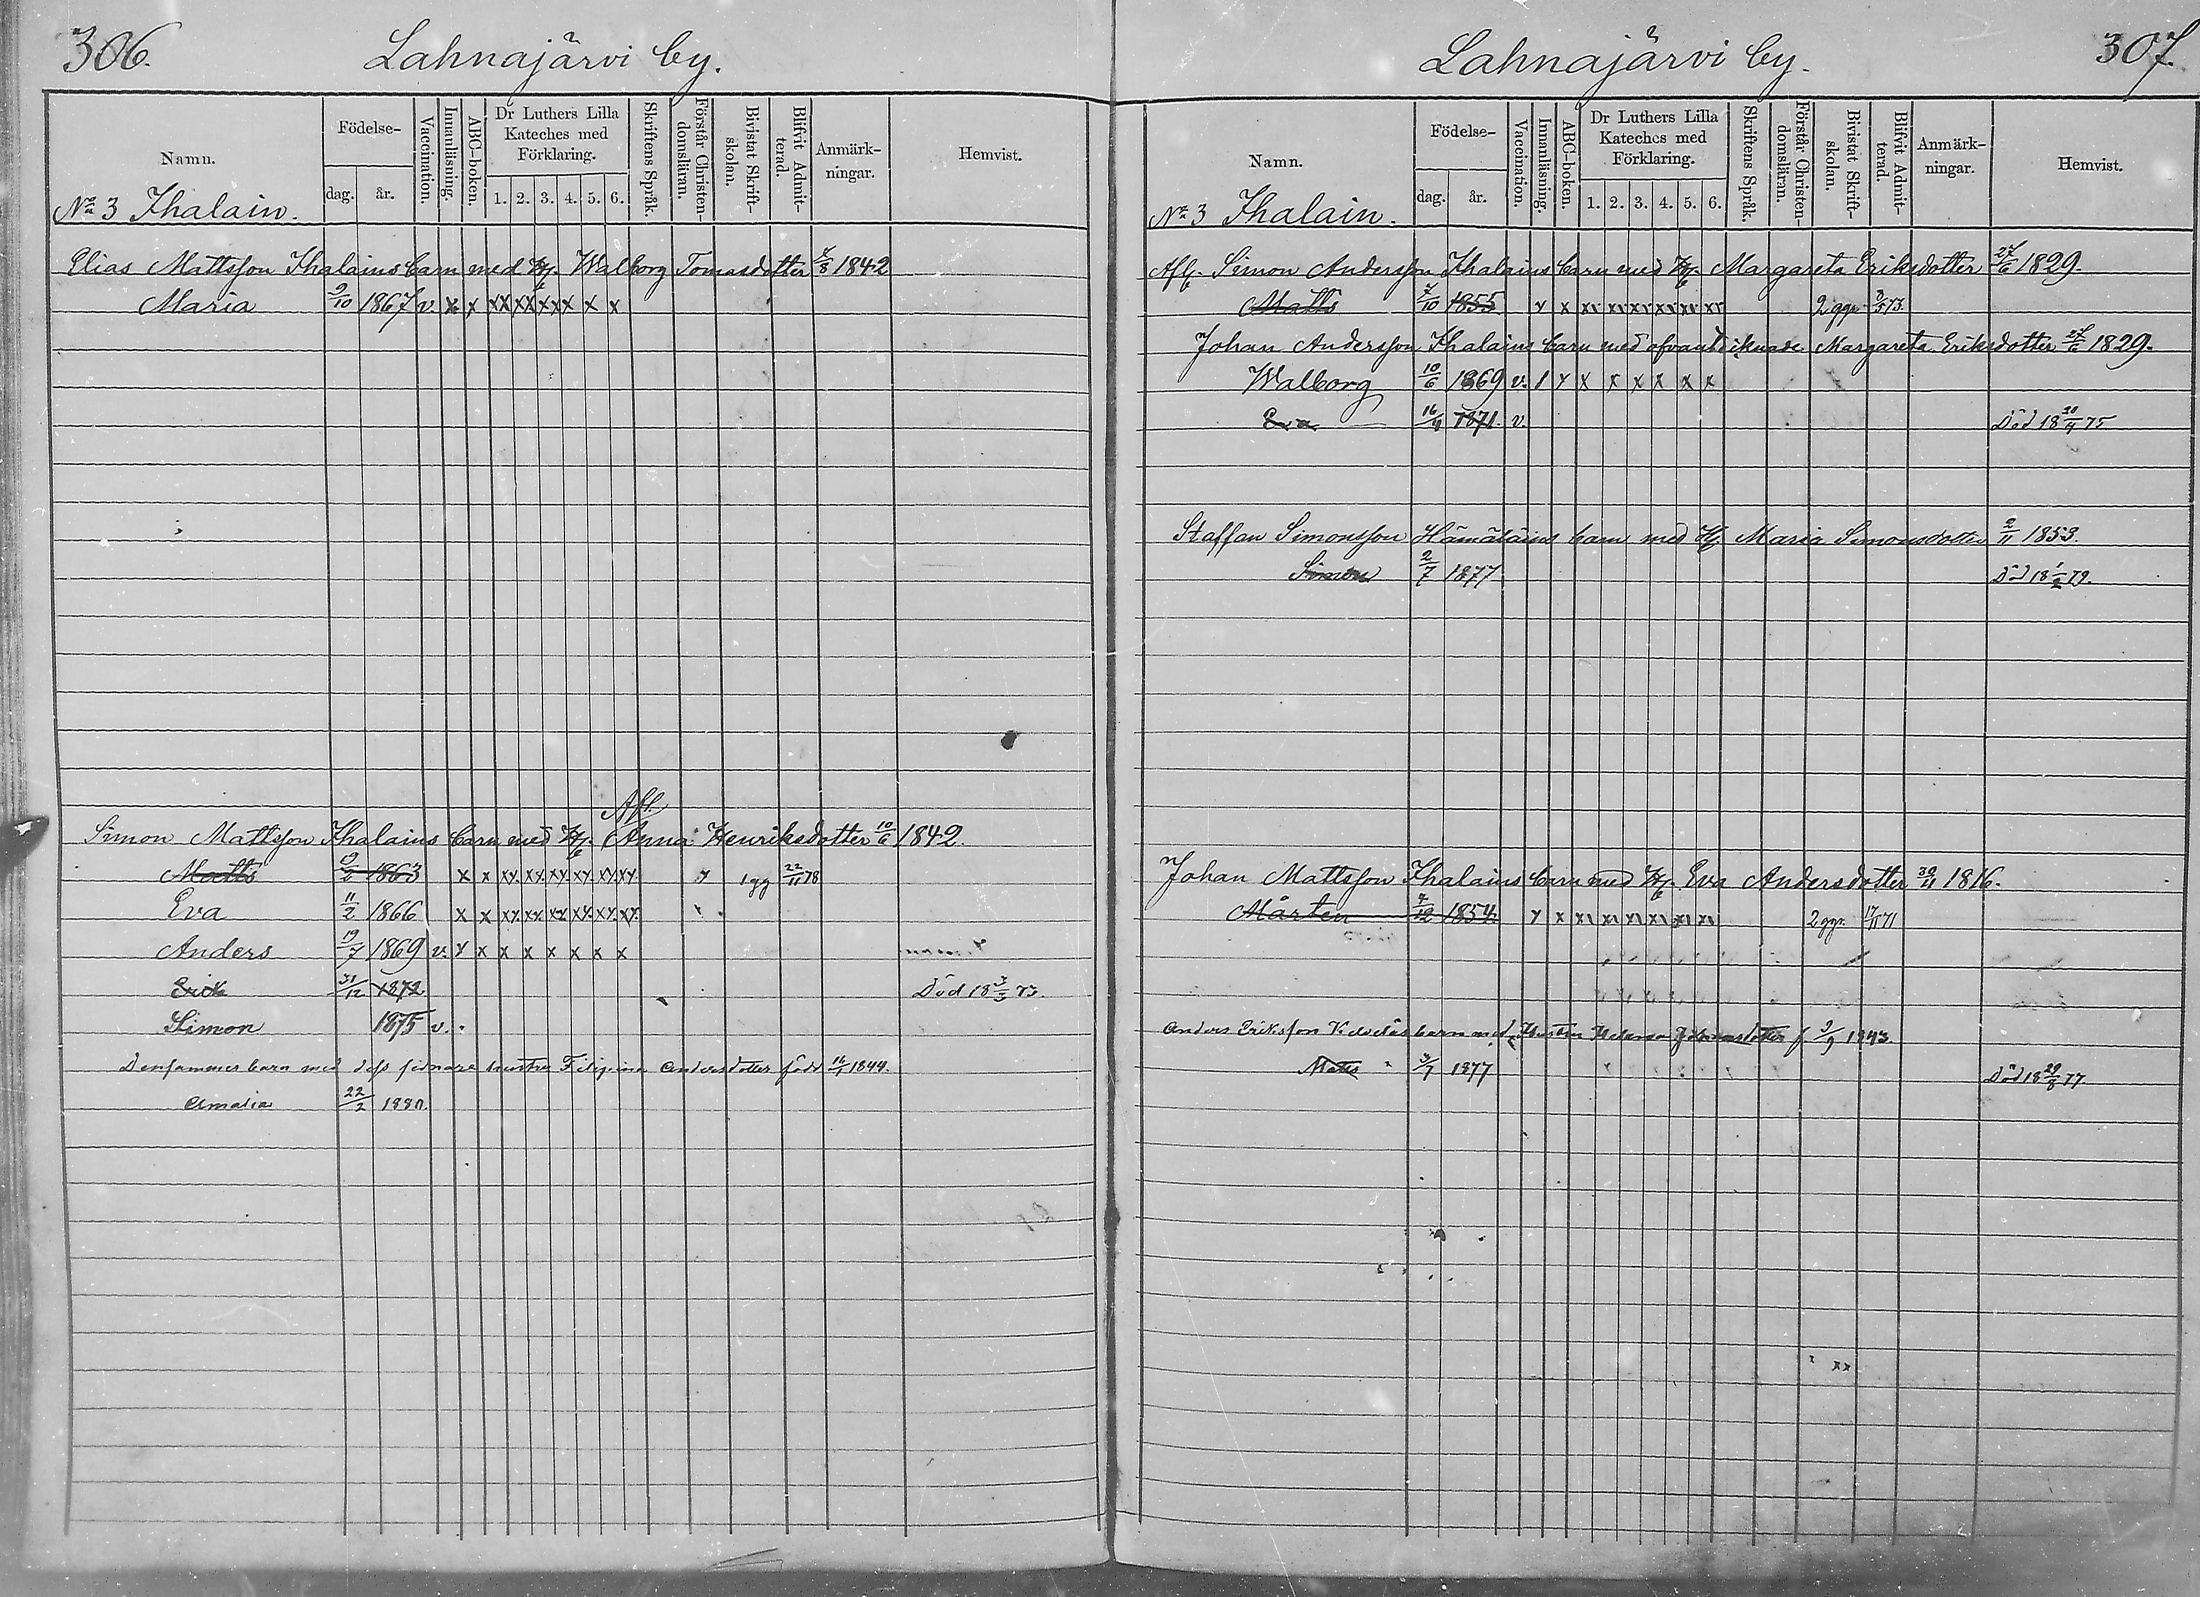 306. Lahnajärvi by.
Namn. Födelse- dag. år. Vaccination. Innanläsning. ABC-boken. Dr Luthers Lilla Kateches med Förklaring. 1. 2. 3. 4. 5. 6. Skriftens Språk. Förstår Christen-domsläran. Bivistat Skrift-skolan. Blifvit Admit-terad. Anmärk-ningar. Hemvist.
No 3 Ihalain.
Elias Mattsson Ihalains barn med H. Walborg Tomasdotter 1842
Maria 9/10 1867 v. x x xx xx xx x x x
Afl.
Simon Mattsson Ihalains barn med H. Anna Henriksdotter 10/6 1842.
Matts 1863 x x xx xx xx xx xx xx 1 gg 22/11 78
Eva 11/2 1866 x x xx xx xx xx xx xx
Anders 19/7 1869 v. x x x x x x x x
Erick 31/12 1872 Död 18 73.
Simon 1875 v.
Densammes barn med dess sednare hustru Filippina Andersdotter född 1844.
Amalia 22/2 1880.
Lahnajärvi by. 307.
Namn. Födelse- dag. år. Vaccination. Innanläsning. ABC-boken. Dr Luthers Lilla Kateches med Förklaring. 1. 2. 3. 4. 5. 6. Skriftens Språk. Förstår Christen-domsläran. Bivistat Skrift-skolan. Blifvit Admit-terad. Anmärk-ningar. Hemvist.
No 3 Ihalain.
Afl. Simon Andersson Ihalains barn med H. Margareta Eriksdotter 27/6 1829.
Matts 7/10 1855 x x xx xx xx xx xx xx 2 ggr 73.
Johan Andersson Ihalains barn med ofvanteknade Margareta Eriksdotter 27/6 1829.
Walborg 10/6 1869 v. x x x x x x x
Eva 1871 v. Död 18 75
Staffan Simonsson Hämäläins barn med H. Maria Simonsdotter 2/11 1853.
Simon 2/7 1877 Död 18 79.
Johan Mattsson Ihalains barn med H. Eva Andersdotter 1816.
Mårten 1854 x x xx xx xx xx xx xx 2 ggr. 17/11 71
Anders Eriksson barn med 1843.
Matts 3/7 1877 Död 18 29/8 77